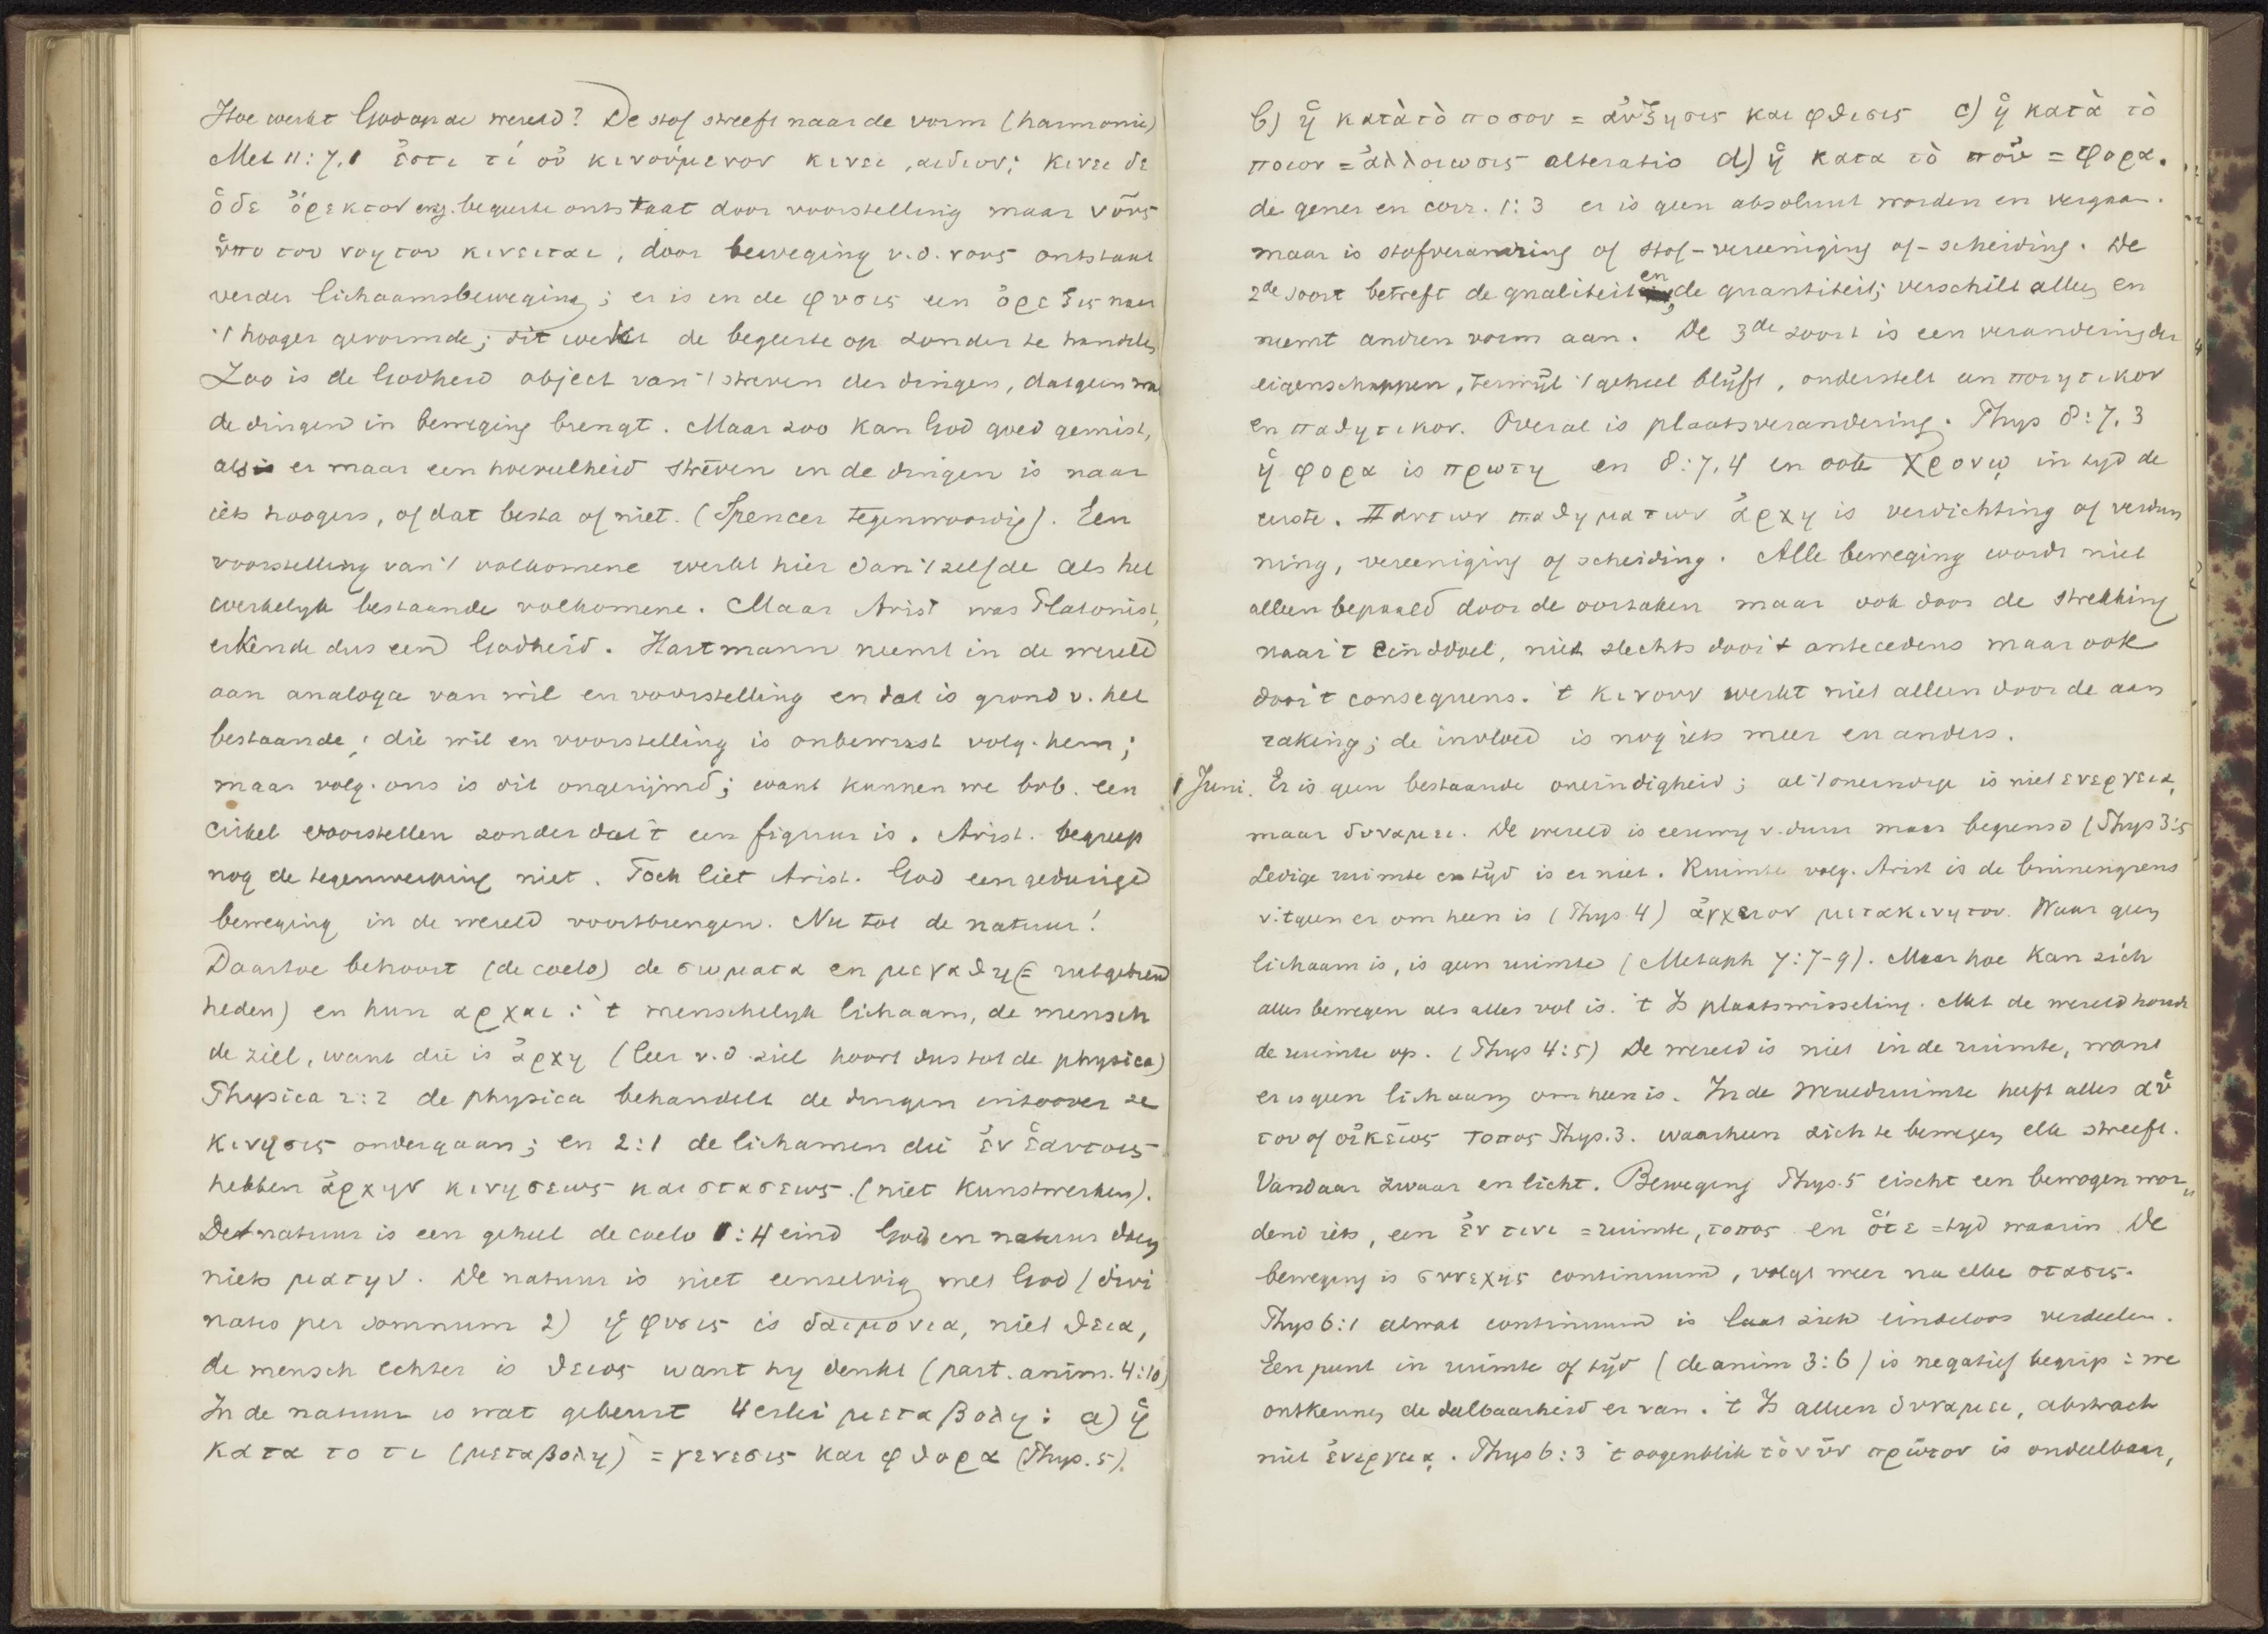 Hoe werkt God op de wereld? De stof streeft naar de vorm (harmonie)
Met 11:7,1 ἔστι τί οὐ κινούμενον κινει, αιδιον; κινει δε
ὁδε ὄρεκτον enz. begeerte ontstaat door voorstelling maar νοῦς
ὑπο του νοητου κινειται, door beweging v.d. νους ontstaat
verder lichaamsbeweging; er is in de φυσις een ὀρεξις naar
't hooger gevormde; dit wekt de begeerte op zonder te handelen
Zoo is de Godheid object van 't streven der dingen, datgeen wat
de dingen in beweging brengt. Maar zoo kan God goed gemist,
als er maar een hoeveelheid streven in de dingen is naar
iets hoogers, of dat besta of niet. (Spencer tegenwoordig). Een
voorstelling van 't volkomene werkt hier dan 't zelfde als het
werkelyk bestaande volkomene. Maar Arist was Platonist,
erkende dus een Godheid. Hartmann neemt in de wereld
aan analoga van wil en voorstelling en dat is grond v. het
bestaande; die wil en voorstelling is onbewust volg. hem;
maar volg. ons is dit ongerijmd; want kunnen we bvb. een
cirkel voorstellen zonder dat 't een figuur is. Arist. begreep
nog de tegenwerping niet. Toch liet Arist. God een gedurige
beweging in de wereld voortbrengen. Nu tot de natuur!
Daartoe behoort (de coelo) de σωματα en μεγαθη (= uitgebreid
heden) en hun αρχαι: 't menschelyk lichaam, de mensch
de ziel, want die is ἀρχη (leer v.d. ziel hoort dus tot de physica)
Physica 2:2 de physica behandelt de dingen inzoover ze
κινησις ondergaan; en 2:1 de lichamen die ἐν ἑαυτοις
hebben ἀρχην κινησεως και στασεως. (niet kunstwerken).
De natuur is een geheel de coelo 1:4 eind God en natuur doen
niets ματην. De natuur is niet eenselvig met God (divi
natio per somnum 2) ἡ φυσις is δαιμονια, niet θεια,
de mensch echter is θειος want hy denkt (part. anim. 4:10)
In de natuur is wat gebeurt 4erlei μεταβολη: a) ἡ
κατα το τι (μεταβολη) = γενεσις και φθορα (Phys. 5).
b) ἡ κατὰ τὸ ποσον = αὐξησις και φθισις c) ἡ κατὰ τὸ
ποιον = ἀλλοιωσις alteratio d) ἡ κατα τὸ ποὺ = φορα.
de gener en corr. 1:3 er is geen absoluut worden en vergaan.
maar is stofverandring of stof-vereeniging of-scheiding. De
2de soort betreft de qualiteit en de quantiteit; verschilt alleen en
neemt andren vorm aan. De 3de soort is een verandering der
eigenschappen, terwijl 't geheel blijft, onderstelt een ποιητικον
en παθητικον. Overal is plaatsverandering. Phys 8:7,3
ἡ φορα is πρωτη en 8:7,4 en ook χρονῳ in tyd de
eerste. Παντων παθηματων ἀρχη is verdichting of verdun
ning, vereeniging of scheiding. Alle beweging wordt niet
alleen bepaald door de oorzaken maar ook door de strekking
naar 't einddoel, niet slechts door 't antecedens maar ook
door 't consequens. 't κινουν werkt niet alleen door de aan
raking; de invloed is nog iets meer en anders.
1 Juni. Er is geen bestaande oneindigheid; al 't oneindige is niet ενεργειᾳ,
maar δυναμει. De wereld is eeuwig v. duur maar begrensd (Phys 3:5
Ledige ruimte en tijd is er niet. Ruimte volg. Arist is de binnengrens
v. 'tgeen er om heen is (Phys 4) ἀγγειον μετακινητον. Waar geen
lichaam is, is geen ruimte (Metaph 7:7-9). Maar hoe kan zich
alles bewegen als alles vol is. 't Is plaatswisseling. Met de wereld houdt
de ruimte op. (Phys 4:5) De wereld is niet in de ruimte, want
er is geen lichaam om heen is. In de Wereldruimte heeft alles αὑ
του of οἰκειος τοπος Phys. 3. waarheen zich te bewegen elk streeft.
Vandaar zwaar en licht. Beweging Phys. 5 eischt een bewogen wor
dend iets, een ἐν τινι = ruimte, τοπος en ὁτε = tyd waarin De
beweging is συνεχης continuum, volgt weer na elke στασις.
Phys 6:1 alwat continuum is laat zich eindeloos verdeelen.
Een punt in ruimte of tijd (de anim 3:6) is negatief begrip: we
ontkennen de deelbaarheid er van. 't Is alleen δυναμει, abstract
niet ἐνεργειᾳ. Phys 6:3 't oogenblik τὸ νῦν πρῶτον is ondeelbaar,